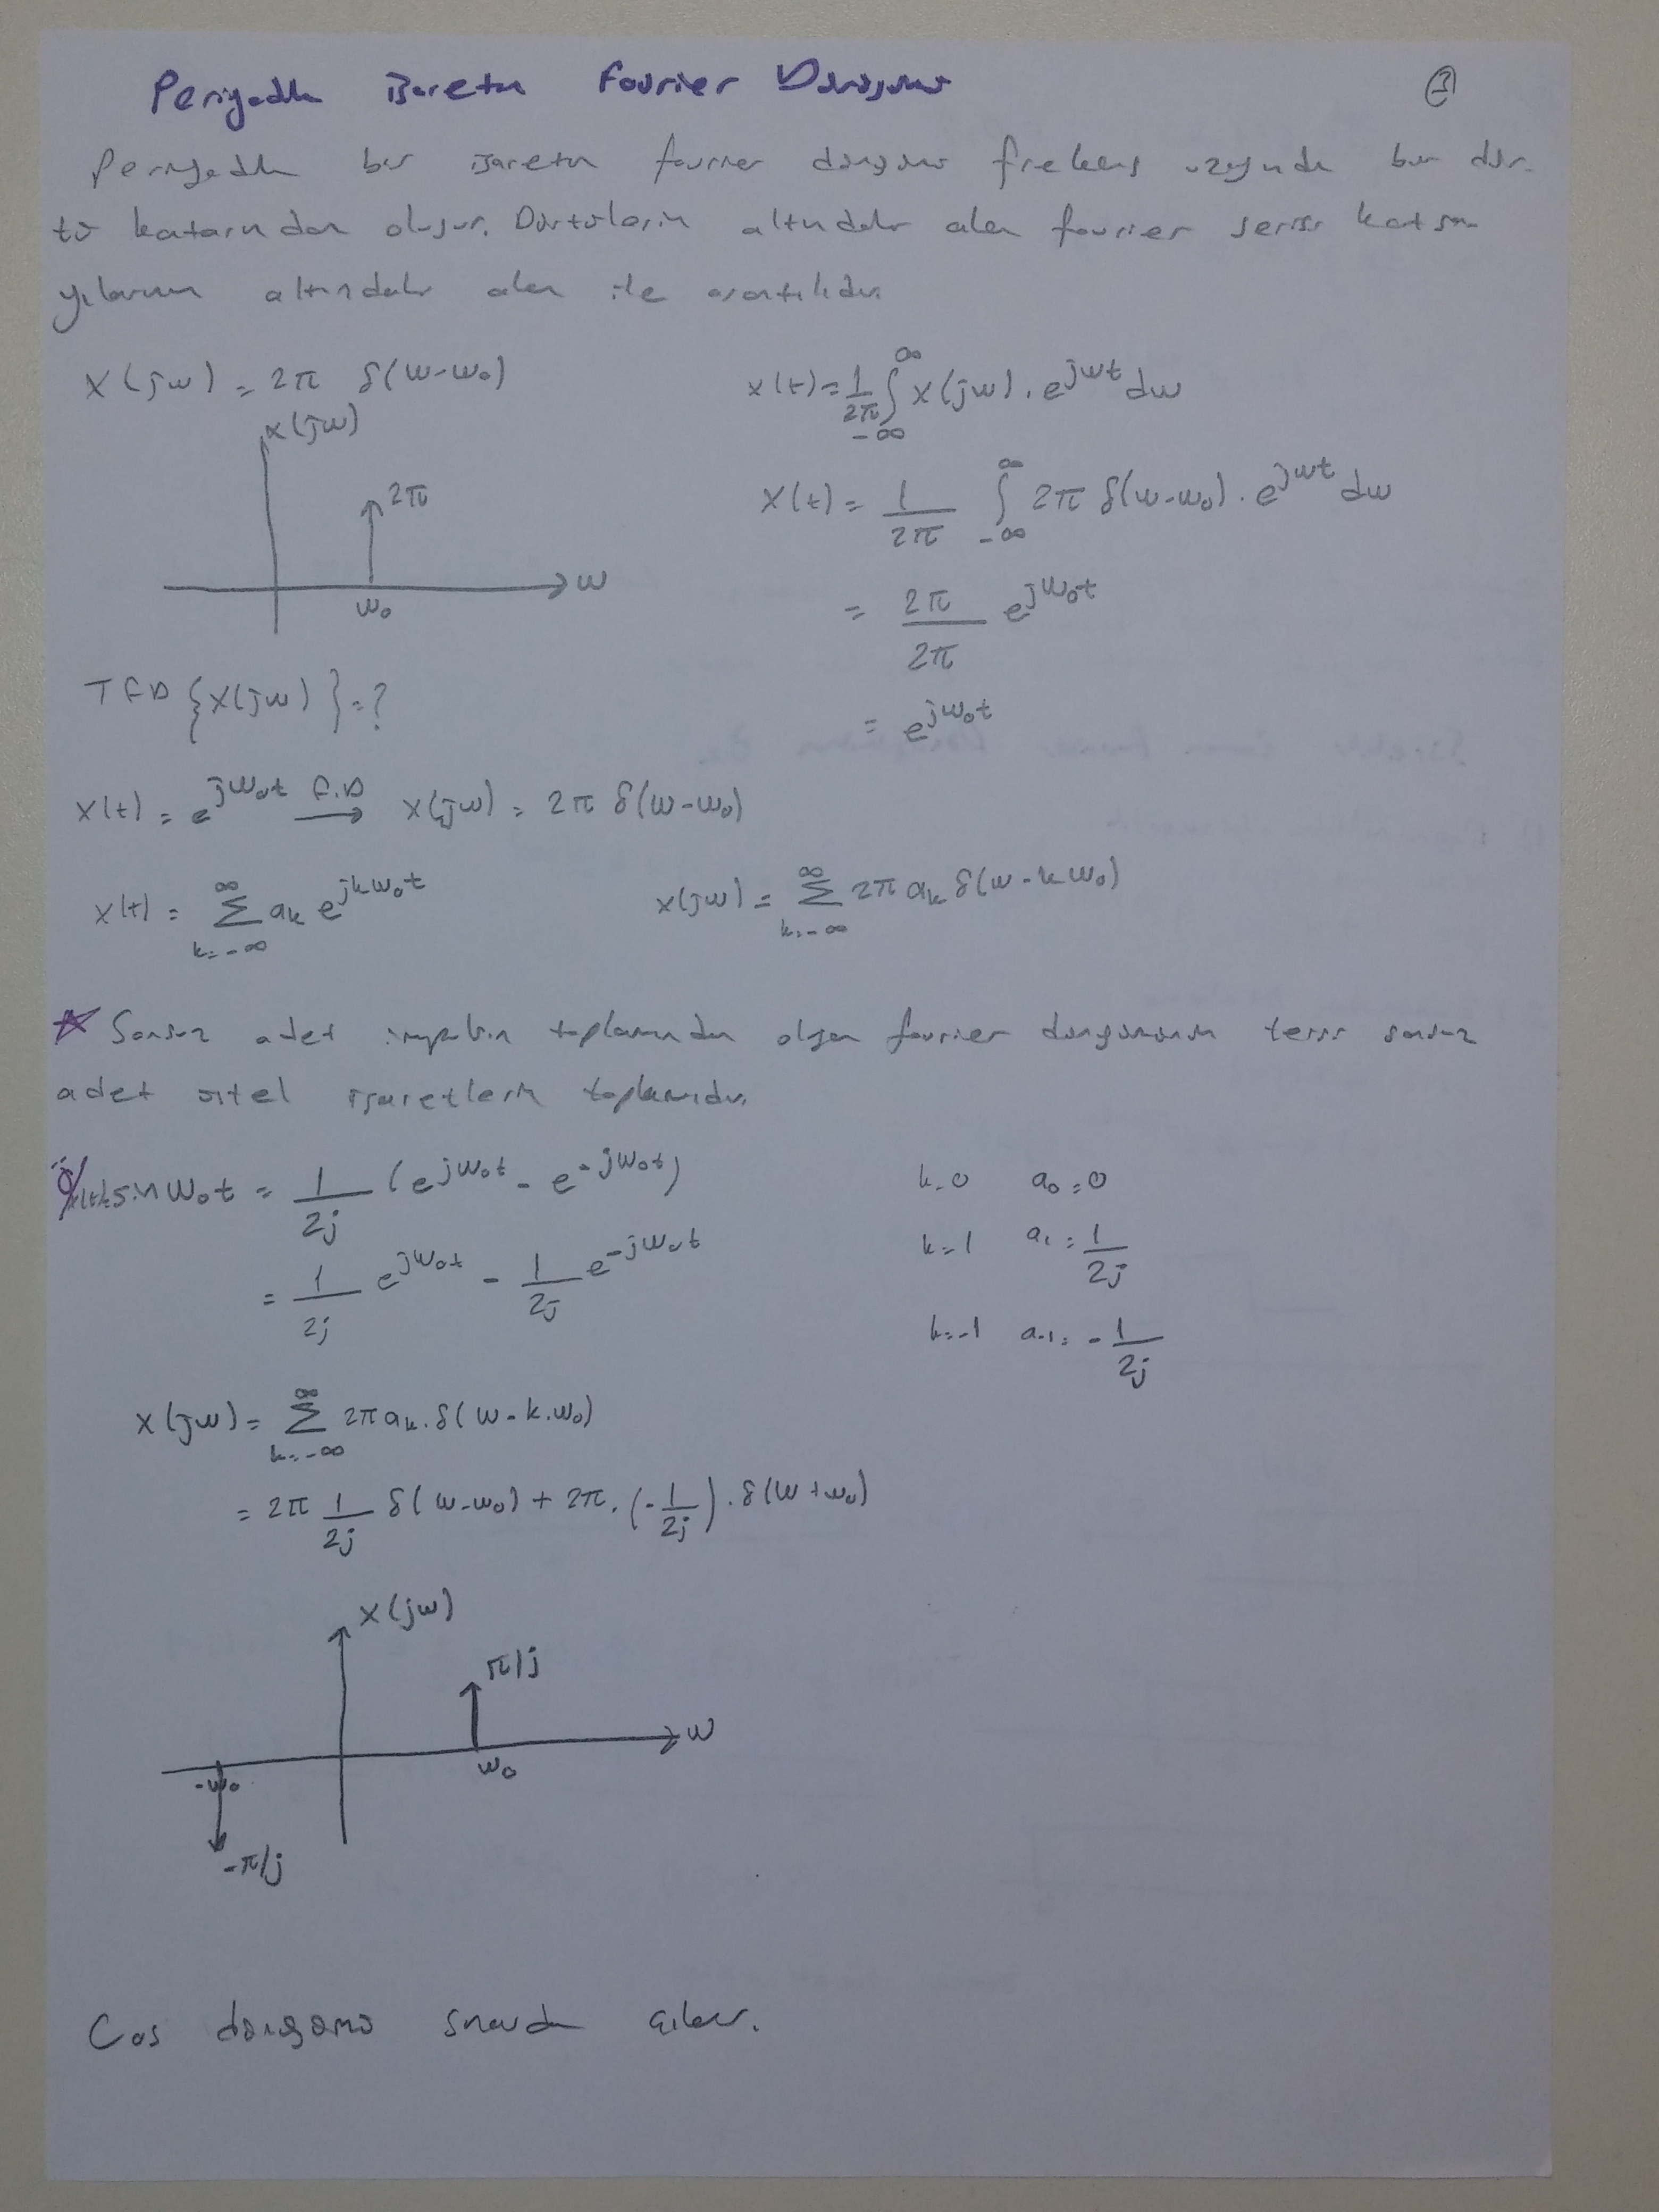 Periyodik İşaretin Fourier Dönüşümü
③
Periyodik bir işaretin fourier dönüşümü frekans uzayında bir dür-
tü katarından oluşur. Dürtülerin altındaki alan fourier serisi katsa-
yılarının altındaki alan ile orantılıdır.
X(jw) = 2π δ(w-w₀)
x(t) = 1/2π ∫_{-∞}^{∞} X(jw) . e^{jwt} dw
X(jw)
2π
w
w₀
x(t) = 1/2π ∫_{-∞}^{∞} 2π δ(w-w₀) . e^{jwt} dw
= 2π/2π e^{jw₀t}
= e^{jw₀t}
TFD {X(jw)} = ?
x(t) = e^{jw₀t} F.D → X(jw) = 2π δ(w-w₀)
x(t) = Σ_{k=-∞}^{∞} a_k e^{jkw₀t}
X(jw) = Σ_{k=-∞}^{∞} 2π a_k δ(w-kw₀)
☆ Sonsuz adet impulsin toplamından oluşan fourier dönüşümünün tersi sonsuz
adet üstel işaretlerin toplamıdır.
Ö/ x(t)=sinw₀t = 1/2j (e^{jw₀t} - e^{-jw₀t})
= 1/2j e^{jw₀t} - 1/2j e^{-jw₀t}
k=0 a₀=0
k=1 a₁ = 1/2j
k=-1 a₋₁ = -1/2j
X(jw) = Σ_{k=-∞}^{∞} 2π a_k . δ(w-k.w₀)
= 2π 1/2j δ(w-w₀) + 2π . (-1/2j) . δ(w+w₀)
X(jw)
π/j
w
w₀
-w₀
-π/j
Cos dönüşümü sınavda çıkar.